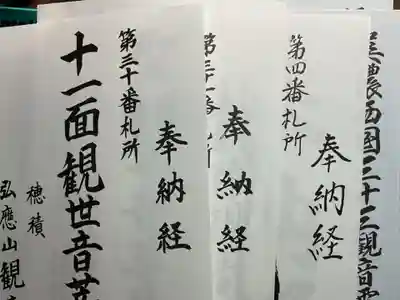 美濃西國三十三観音霊
奉納経
第四番札所
奉納経
第三十一番札所
奉納経
第三十番札所
十一面観世音菩
穂積
弘應山観